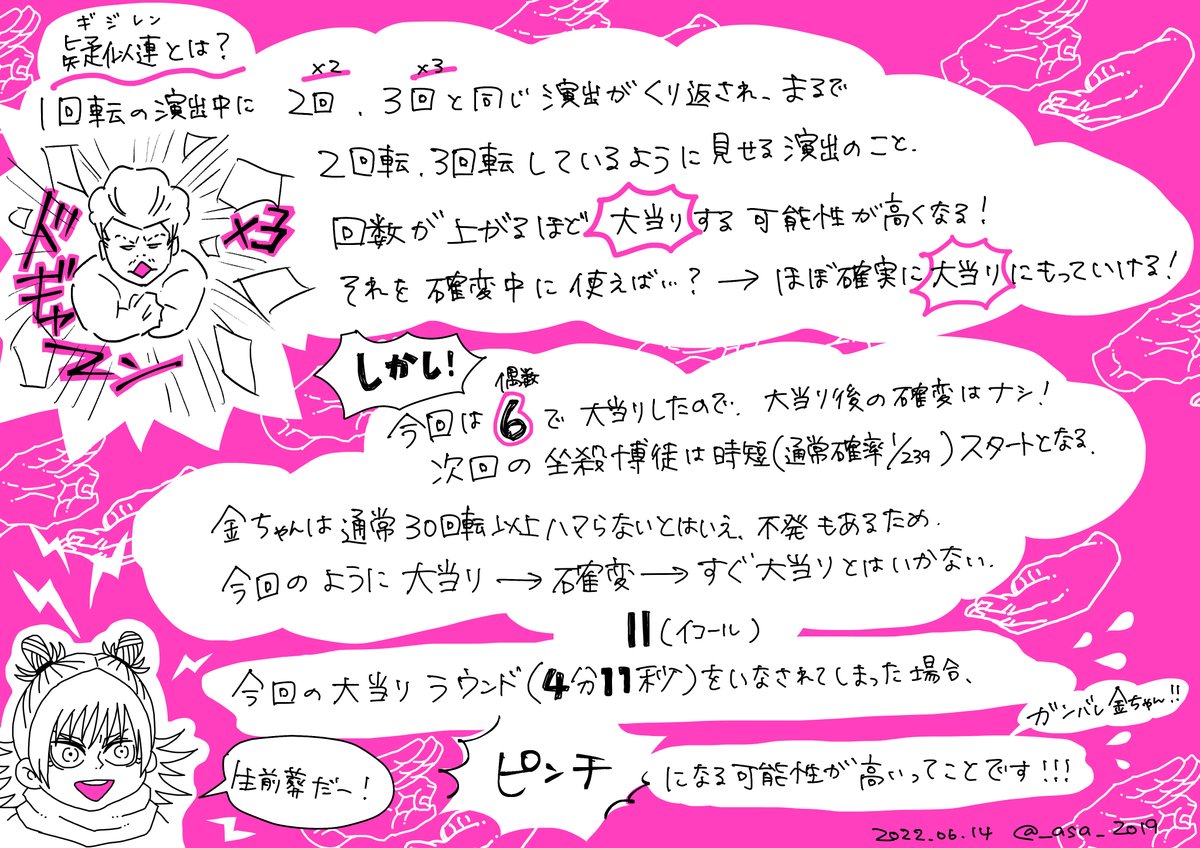 ギジレン
疑似連とは?
×2 ×3
1回転の演出中に 2回、3回と同じ演出がくり返され、まるで
2回転、3回転しているように見せる演出のこと.
回数が上がるほど 大当り する 可能性が高くなる!
それを 確変中に 使えば…? → ほぼ確実に大当りにもっていける!
×3
ドギャァーン
しかし!
偶数
今回は 6 で 大当りしたので、大当り後の確変はナシ!
次回の 坐殺博徒は時短(通常確率1/239)スタートとなる.
金ちゃんは通常30回転以上ハマらないとはいえ、不発もあるため.
今回のように 大当り → 確変 → すぐ大当りとはいかない.
||(イコール)
今回の大当りラウンド(4分11秒)をいなされてしまった場合、
ガンバレ金ちゃん!!
生前葬だー!
ピンチ
になる可能性が高いってことです!!!
2022.06.14 @_asa_2019